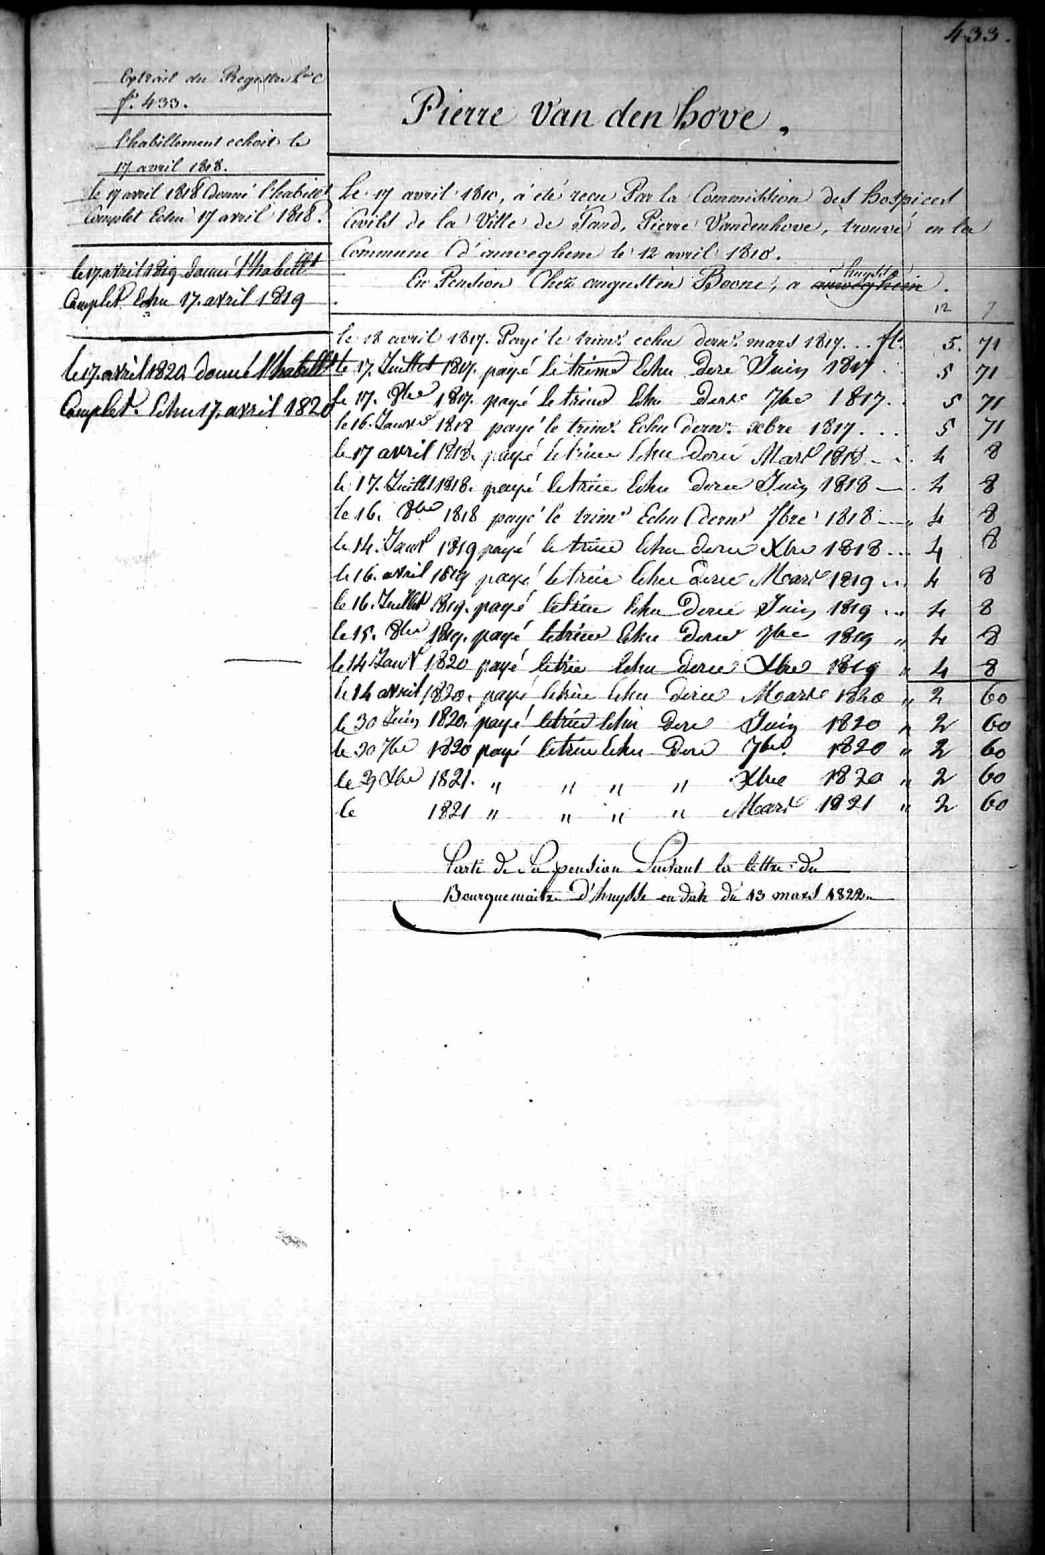 433.
Extrait du Registre Lre C
f° 433.
l'habillement echoit le
17 avril 1818.
le 17 avril 1818 donné l'habillt
Complet Echu 17 avril 1818.
le 17 avril 1819 donné l'habillt
Complet Echu 17 avril 1819
le 17 avril 1820 donné l'habillt
Complet. Echu 17 avril 1820
Pierre Van den hove.
Le 17 avril 1810, a été recu Par la Commission des hospices
Civils de la Ville de Gand, Pierre Vandenhove, trouvé en la
Commune d'anveghem le 12 avril 1810.
huysse
En Pension Chez augustin Boone, a anveghem.
12 7
le 18 avril 1817. Payé le trim. echu dern. mars 1817 . . . fl. 5. 71
le 17. Juillet 1817. payé le trime Echu Dere Juin 1817 . 5 71
le 17. 8bre 1817. payé le trime Echu Dere 7bre 1817 . . 5 71
le 16. Janvr 1818 payé le trim. Echu dern. xbre 1817 . . . 5 71
le 17 avril 1818. payé le trime Echu derne Mars 1818 4 8
le 17. Juillet 1818. payé le trime Echu derne Juin 1818 4 8
le 16. 8bre 1818 payé le trimr Echu dernr 7bre 1818 " 4 8
le 14. Janvr 1819 payé le trime Echu derne Xbre 1818 . . 4 8
le 16. avril 1819 payé le trime Echu derne Mars 1819 . . 4 8
le 16. Juillet 1819. payé le trime Echu Derne Juin 1819 . . 4 8
le 15. 8bre 1819. payé le trime Echu Derne 7bre 1819 " 4 8
le 14 Janvr 1820 payé le trime Echu derne Xbre 1819 " 4 8
le 14 avril 1820. payé le trime Echu derne Mars 1820 " 2 60
le 30 Juin 1820. payé le trime Echu Dere Juin 1820 " 2 60
le 30 7bre 1820 payé le trime Echu Dere 7bre 1820 " 2 60
le 29 Xbre 1821. " " " " Xbre 1820 " 2 60
le 1821 " " " " Mars 1821 " 2 60
Sorti de Sa pension Suivant la lettre du
Bourguemaitre D'huysse en date du 13 mars 1822.